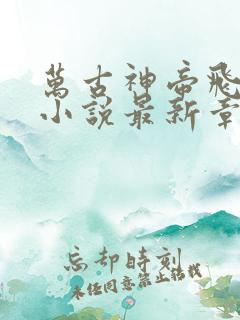 萬古神帝飛
小說最新章
忘却時刻
未经同意禁止转载